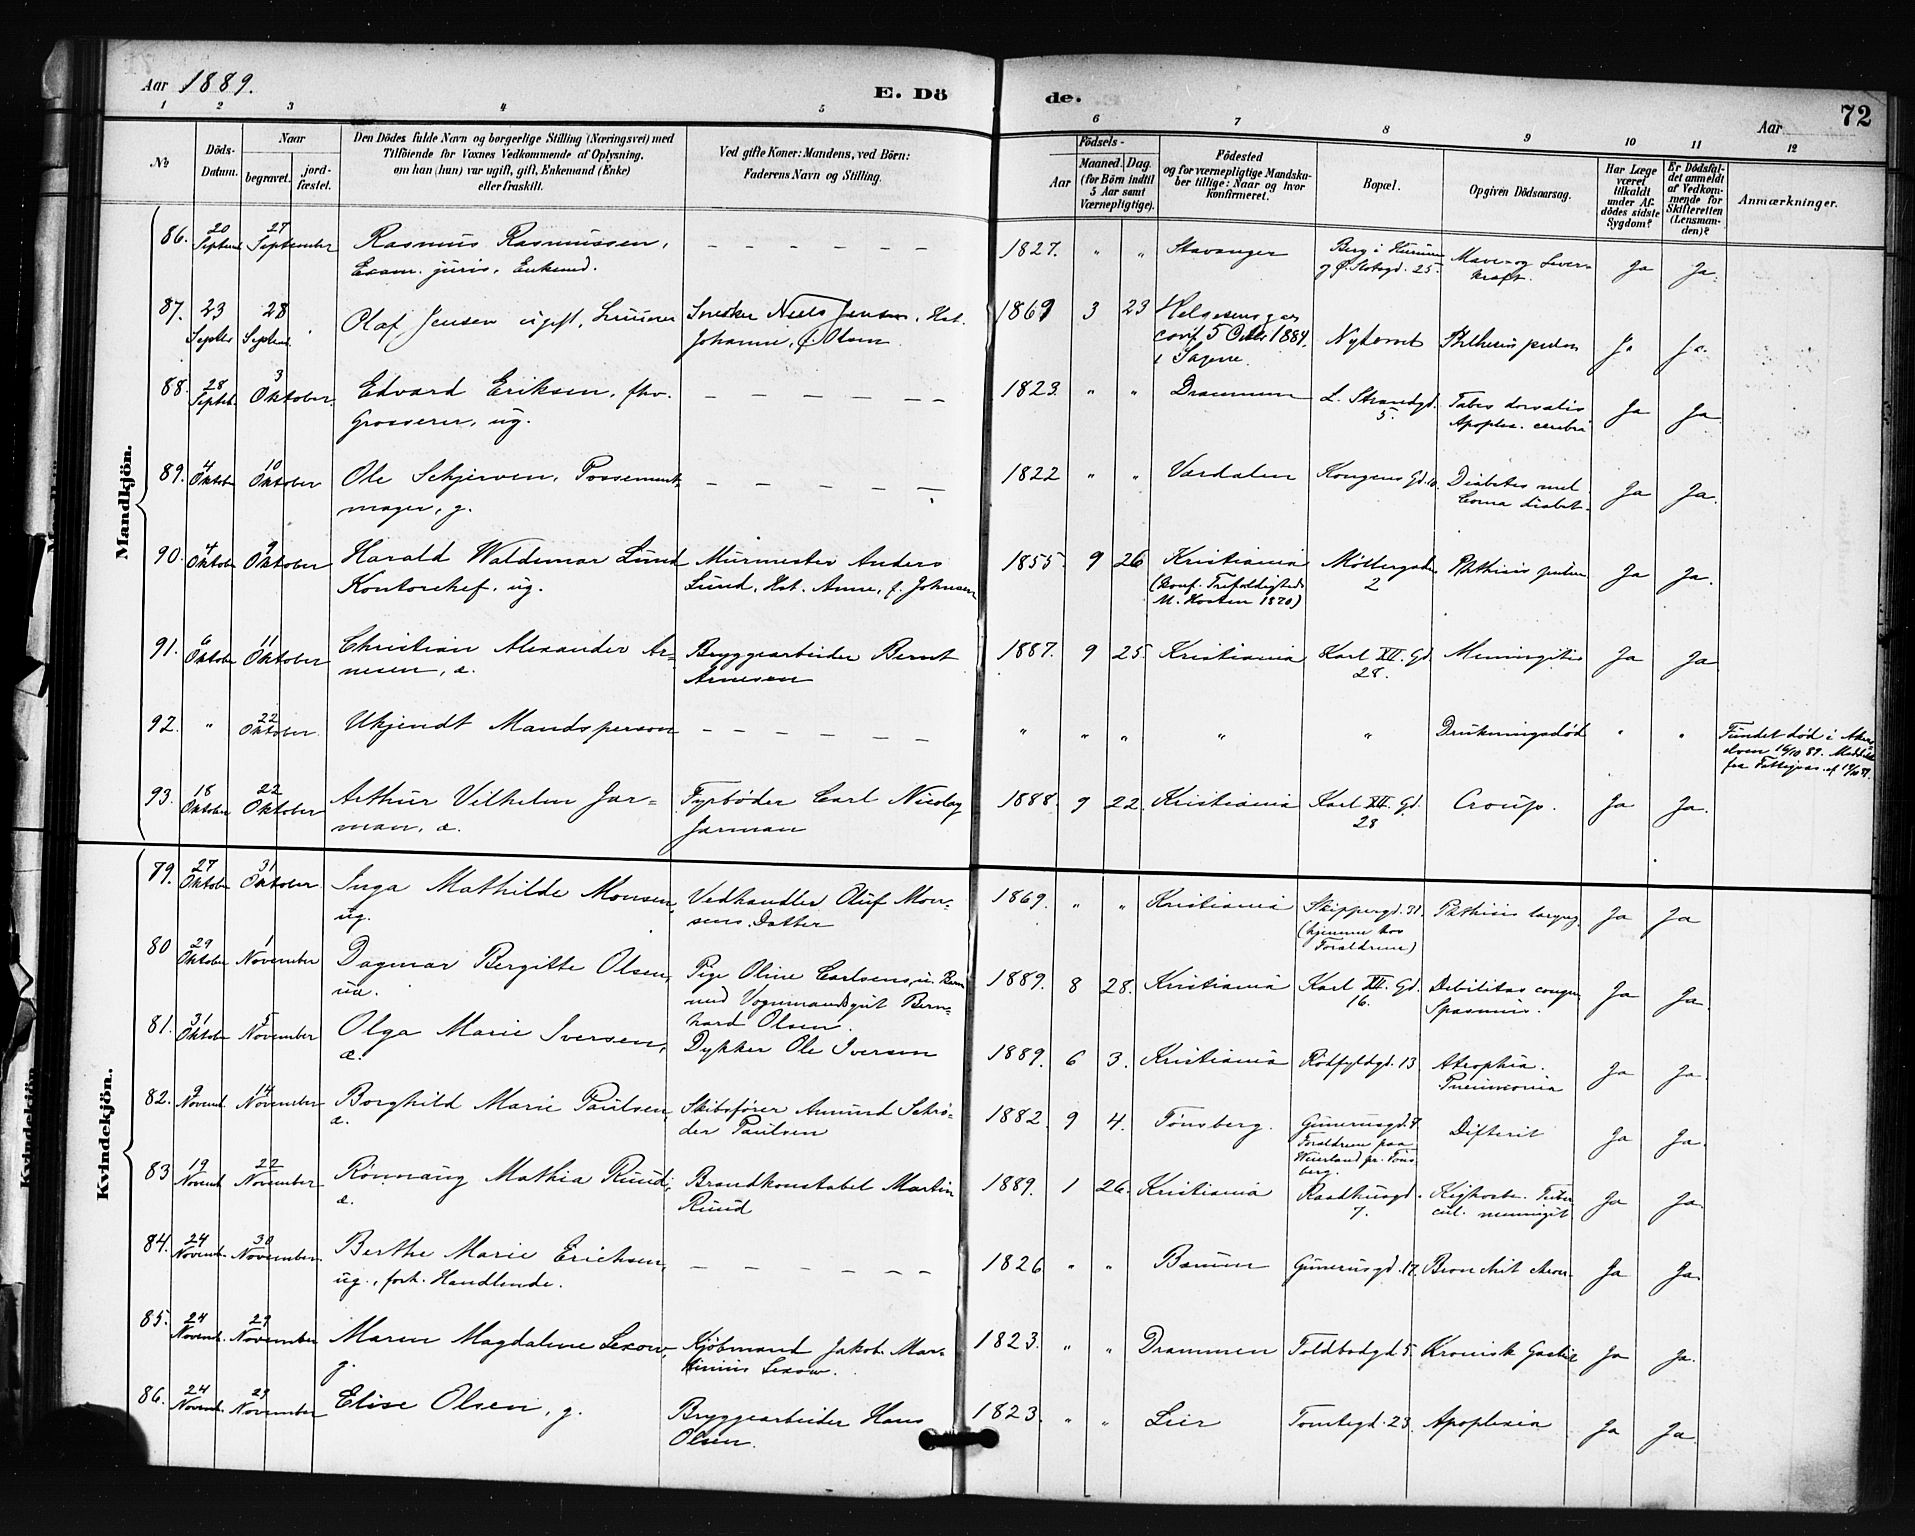 Aar 1889. E. Dö de. Aar 72
1 2 3 4 5 6 7 8 9 10 11 12
No
Döds-Datum.
Naar begravet. jordfæstet.
Den Dödes fulde Navn og borgerlige Stilling (Næringsvei) med
Tilföiende for Voxnes Vedkommende af Oplysning,
om han (hun) var ugift, gift, Enkemand (Enke)
eller fraskilt.
Ved gifte Koner: Mandens, ved Börn:
Faderens Navn og Stilling.
Födsels-
Aar Maaned. Dag.
(for Börn indtil
5 Aar samt
Værnepligtige).
Födested
og for værnepligtige Mandskaber tillige: Naar og hvor
konfirmeret.
Bopæl.
Opgiven Dödsaarsag.
Har Læge
været
tilkaldt
under Afdödes sidste
Sygdom?
Er Dödsfaldet anmeldt
af Vedkommende for
Skifteretten
(Lensmanden)?
Anmærkninger.
Mandkjön.
86. 20 Septemb 27 September Rasmus Rasmussen, – – – – – – 1827. " " Stavanger Berg i Mave- og Lever-
Exam. juris, Enkemd. og Slotsgd. 25. kræft. Ja Ja.
87. 23 Septbr 28 Septemb. Olaf Jensen ugift, Snedker Niels Jensen, Hst. 1869 3 23 Helgesensgae
Johanne, f. Olsen conf. 5 Oktbr 1884. Nytorvet Phthisis pulm Ja Ja.
i Sagene.
88. 28 Septbr. 3 Oktober. Edvard Eriksen, fhv. – – – – – – 1823. " " Drammen L. Strandgd. Tabes dorsalis Ja Ja
Grosserer, ug. 5. Apoplex. cerebri
89. 4 Oktober 10 Oktober Ole Schjerven, Possement- – – – – – 1822 " " Værdalen Kongens Gd. 10. Diabetes mel. Ja Ja.
mager, g. Coma diabet.
90. 4 Oktober 9 Oktober Harald Waldemar Lund Murmester Anders 1855. 9 26 Kristiania Møllergaden Phthisis pulm Ja Ja.
Kontorchef, ug. Lund, Hst. Anne, f. Johnsen (Conf. Trefoldigheds 2
M. Høsten 1870)
91. 6 Oktober 11 Oktober Christian Alexander Ar- Bryggearbeider Bernt 1887. 9 25. Kristiania Karl XII. Gd Meningitis Ja Ja
nesen, æ. Arnesen 28.
92. " 22 Oktober. Ukjendt Mandsperson – – – – – – " " " " " Drukningsdød " " Fundet død i Akers-
elven 16/10 89.
93. 18 Oktober 22 Oktober Arthur Vilhelm Jar- Fyrbøder Carl Nicolay 1888. 9 22. Kristiania Karl XII. Gd. Croup. Ja Ja.
man, æ. Jarman 28
Kvindekjön.
79. 27 Oktober 31 Oktober Inga Mathilde Monsen, Vedhandler Oluf Mon- 1869. " " Kristiania Skippergd. 31. Phthisis laryng. Ja Ja
ug. sens Datter (hjemme hos
Forældrene)
80 29 Oktober 1 November Dagmar Bergitte Olsen, Pige Oline Carlsens, u. Barn 1889. 8 28. Kristiania Karl XII. Gd. Debilitas congen Ja Ja.
uæ. med Vognmandsgut Bern- 16. Spasmus.
hard Olsen.
81. 31 Oktober 5 November Olga Marie Iversen, Dykker Ole Iversen 1889. 6 3. Kristiania Rødfyldgd. 13 Atrophia. Ja Ja.
æ. Pneumonia
82. 9 Novemb. 14 November Borghild Marie Paulsen, Skibsfører Amund Schrø- 1882. 9 4. Tønsberg. Gunerusgd. Difterit Ja Ja.
æ. der Paulsen Forældrene paa
pr. Tøns-
berg.
83 19 Novemb 22 November Rønnaug Mathia Ruud, Brandkonstabel Martin 1889. 1 26. Kristiania Raadhusgd. Kighoste. Tuber- Ja Ja.
æ. Ruud 7. cul. meningit
84. 24 Novemb. 30 November. Berthe Marie Erichsen, – – – – – – 1826 " " Bærum Gunerusgd. 17. Bronchit chron. Ja Ja.
ug., forh. Handlende.
85. 24 Novemb. 29 November Maren Magdalene Lexow, Kjøbmand Jakob Mar- 1823. " " Drammen Toldbodgd 5. Kronisk Gastrit Ja Ja.
g. tinius Lexow.
86. 24 Novemb. 29 November Elise Olsen, g. Bryggearbeider Hans 1823. " " Lier Tomtegd. 23. Apoplexia Ja Ja.
Olsen.